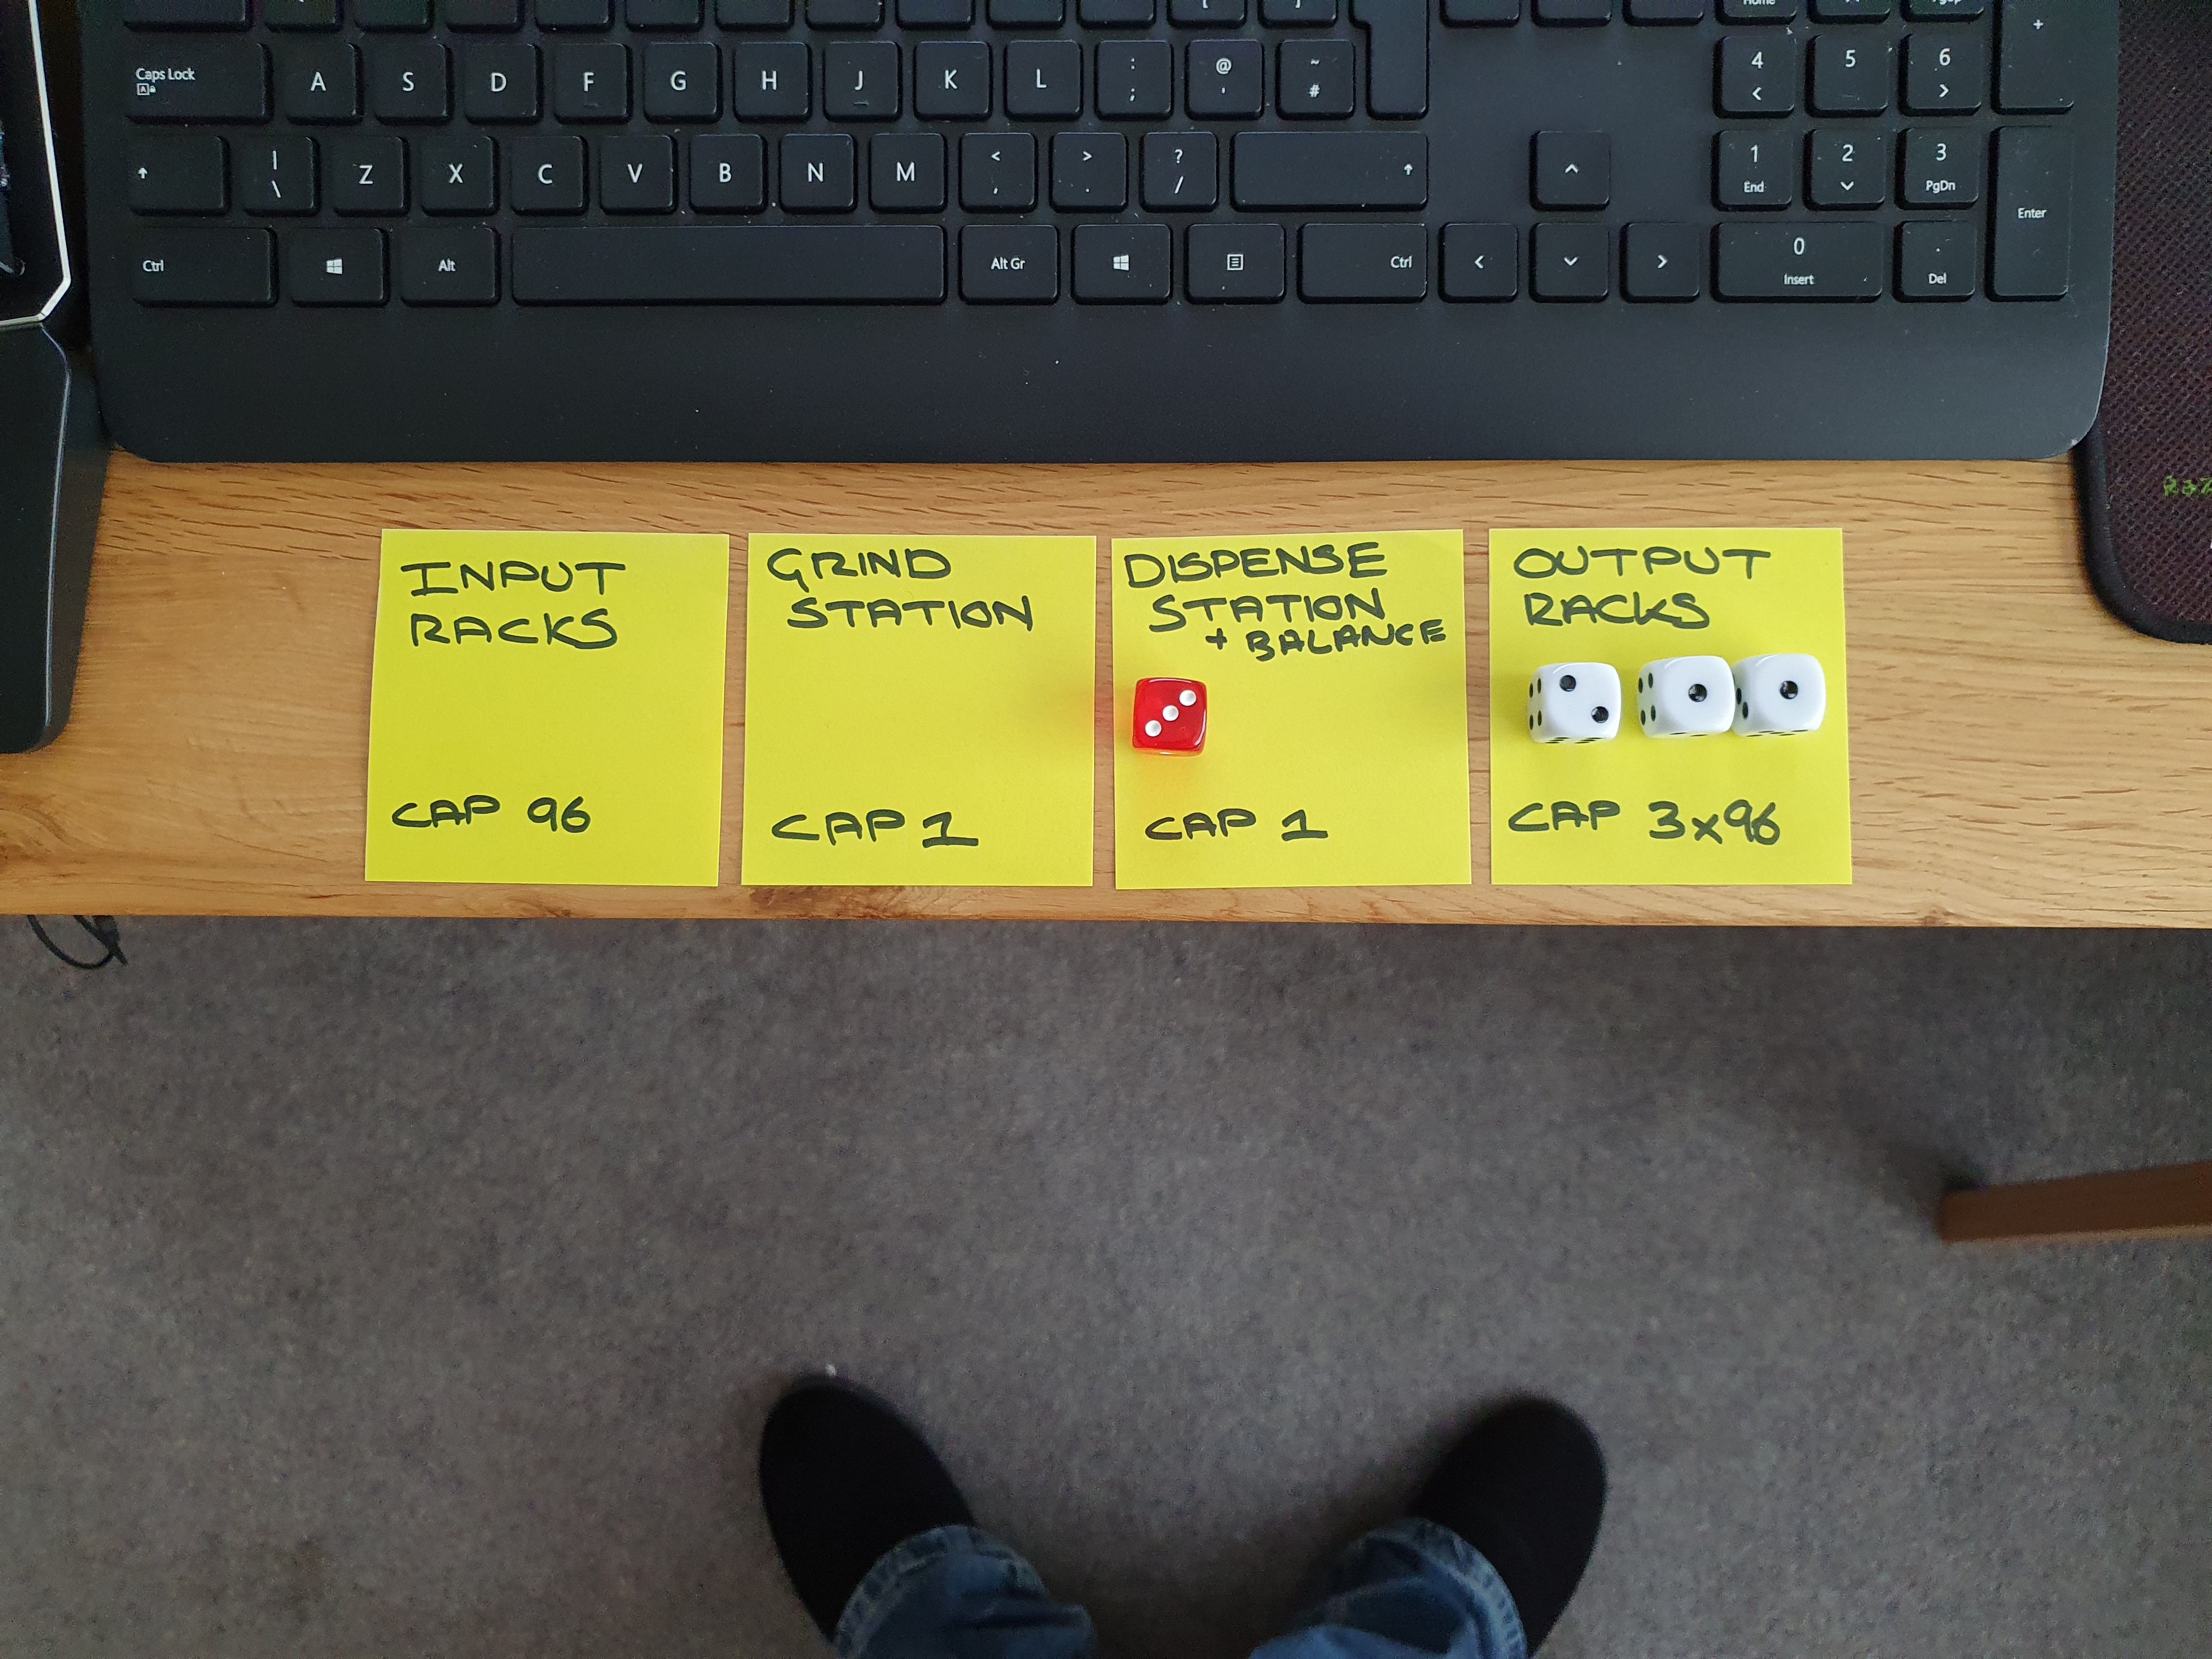 Home
Caps Lock A S D F G H J K L : ; @ ' ~ # 4 5 6
| \ Z X C V B N M < , > . ? / 1 End 2 3 PgDn
Enter
Ctrl Alt Alt Gr Ctrl 0 Insert . Del
+
INPUT
RACKS
CAP 96
GRIND
STATION
CAP 1
DISPENSE
STATION
+ BALANCE
CAP 1
OUTPUT
RACKS
CAP 3x96